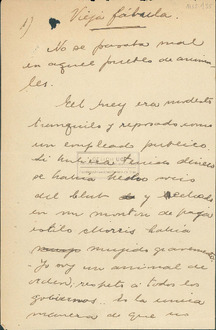 1) Vieja fábula.
No se pasaba mal
en aquel pueblo de anima
les.
El buey era modesto
tranquilo y reposado como
un empleado público.
Si hubiera tenido dinero
se habría hecho socio
del Club y echado
en un montón de paja
estilo había
mugido gravemente
- Yo soy un animal de
orden, respeto a todos los
gobiernos... Es la única
manera de que no